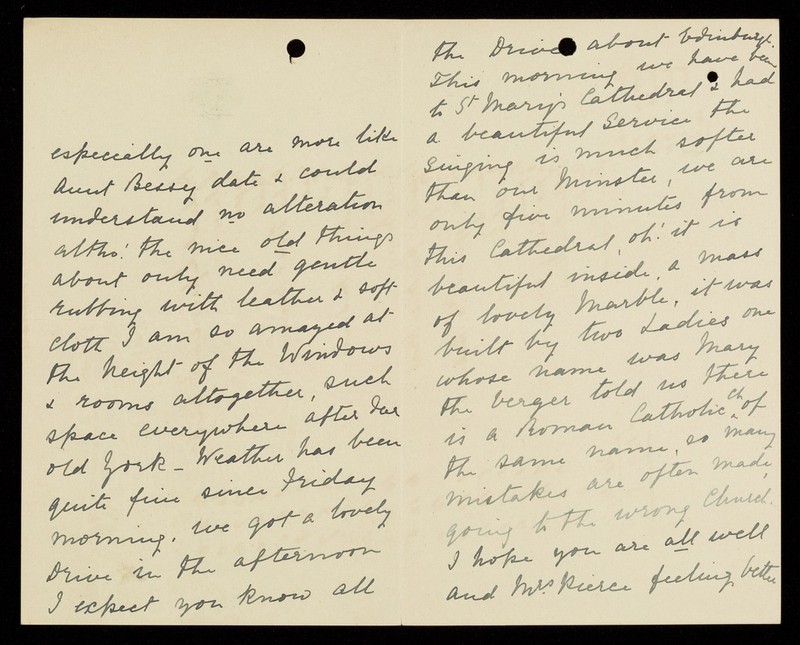 especially one are more like
Aunt Bessy date & could
understand no alteration
altho' the nice old things
about only need gentle
rubbing with leather & soft
cloth I am so amazed at
the height of the Windows
& rooms altogether, such
space everywhere after dear
old York – Weather has been
quite fine since Friday
morning. we got a lovely
Drive in the afternoon
I expect you know all
the Drives about Edinburgh.
This morning we have been
to St Mary's Cathedral & had
a beautiful Service the
Singing is much softer
than our Minster, we are
only five minutes from
this Cathedral, oh! it is
beautiful inside, a mass
of lovely Marble, it was
built by two Ladies one
whose name was Mary
the verger told us there
is a Roman Catholic ch of
the same name, so many
mistakes are often made,
going to the wrong Church.
I hope you are all well
and Mrs Pierce feeling better